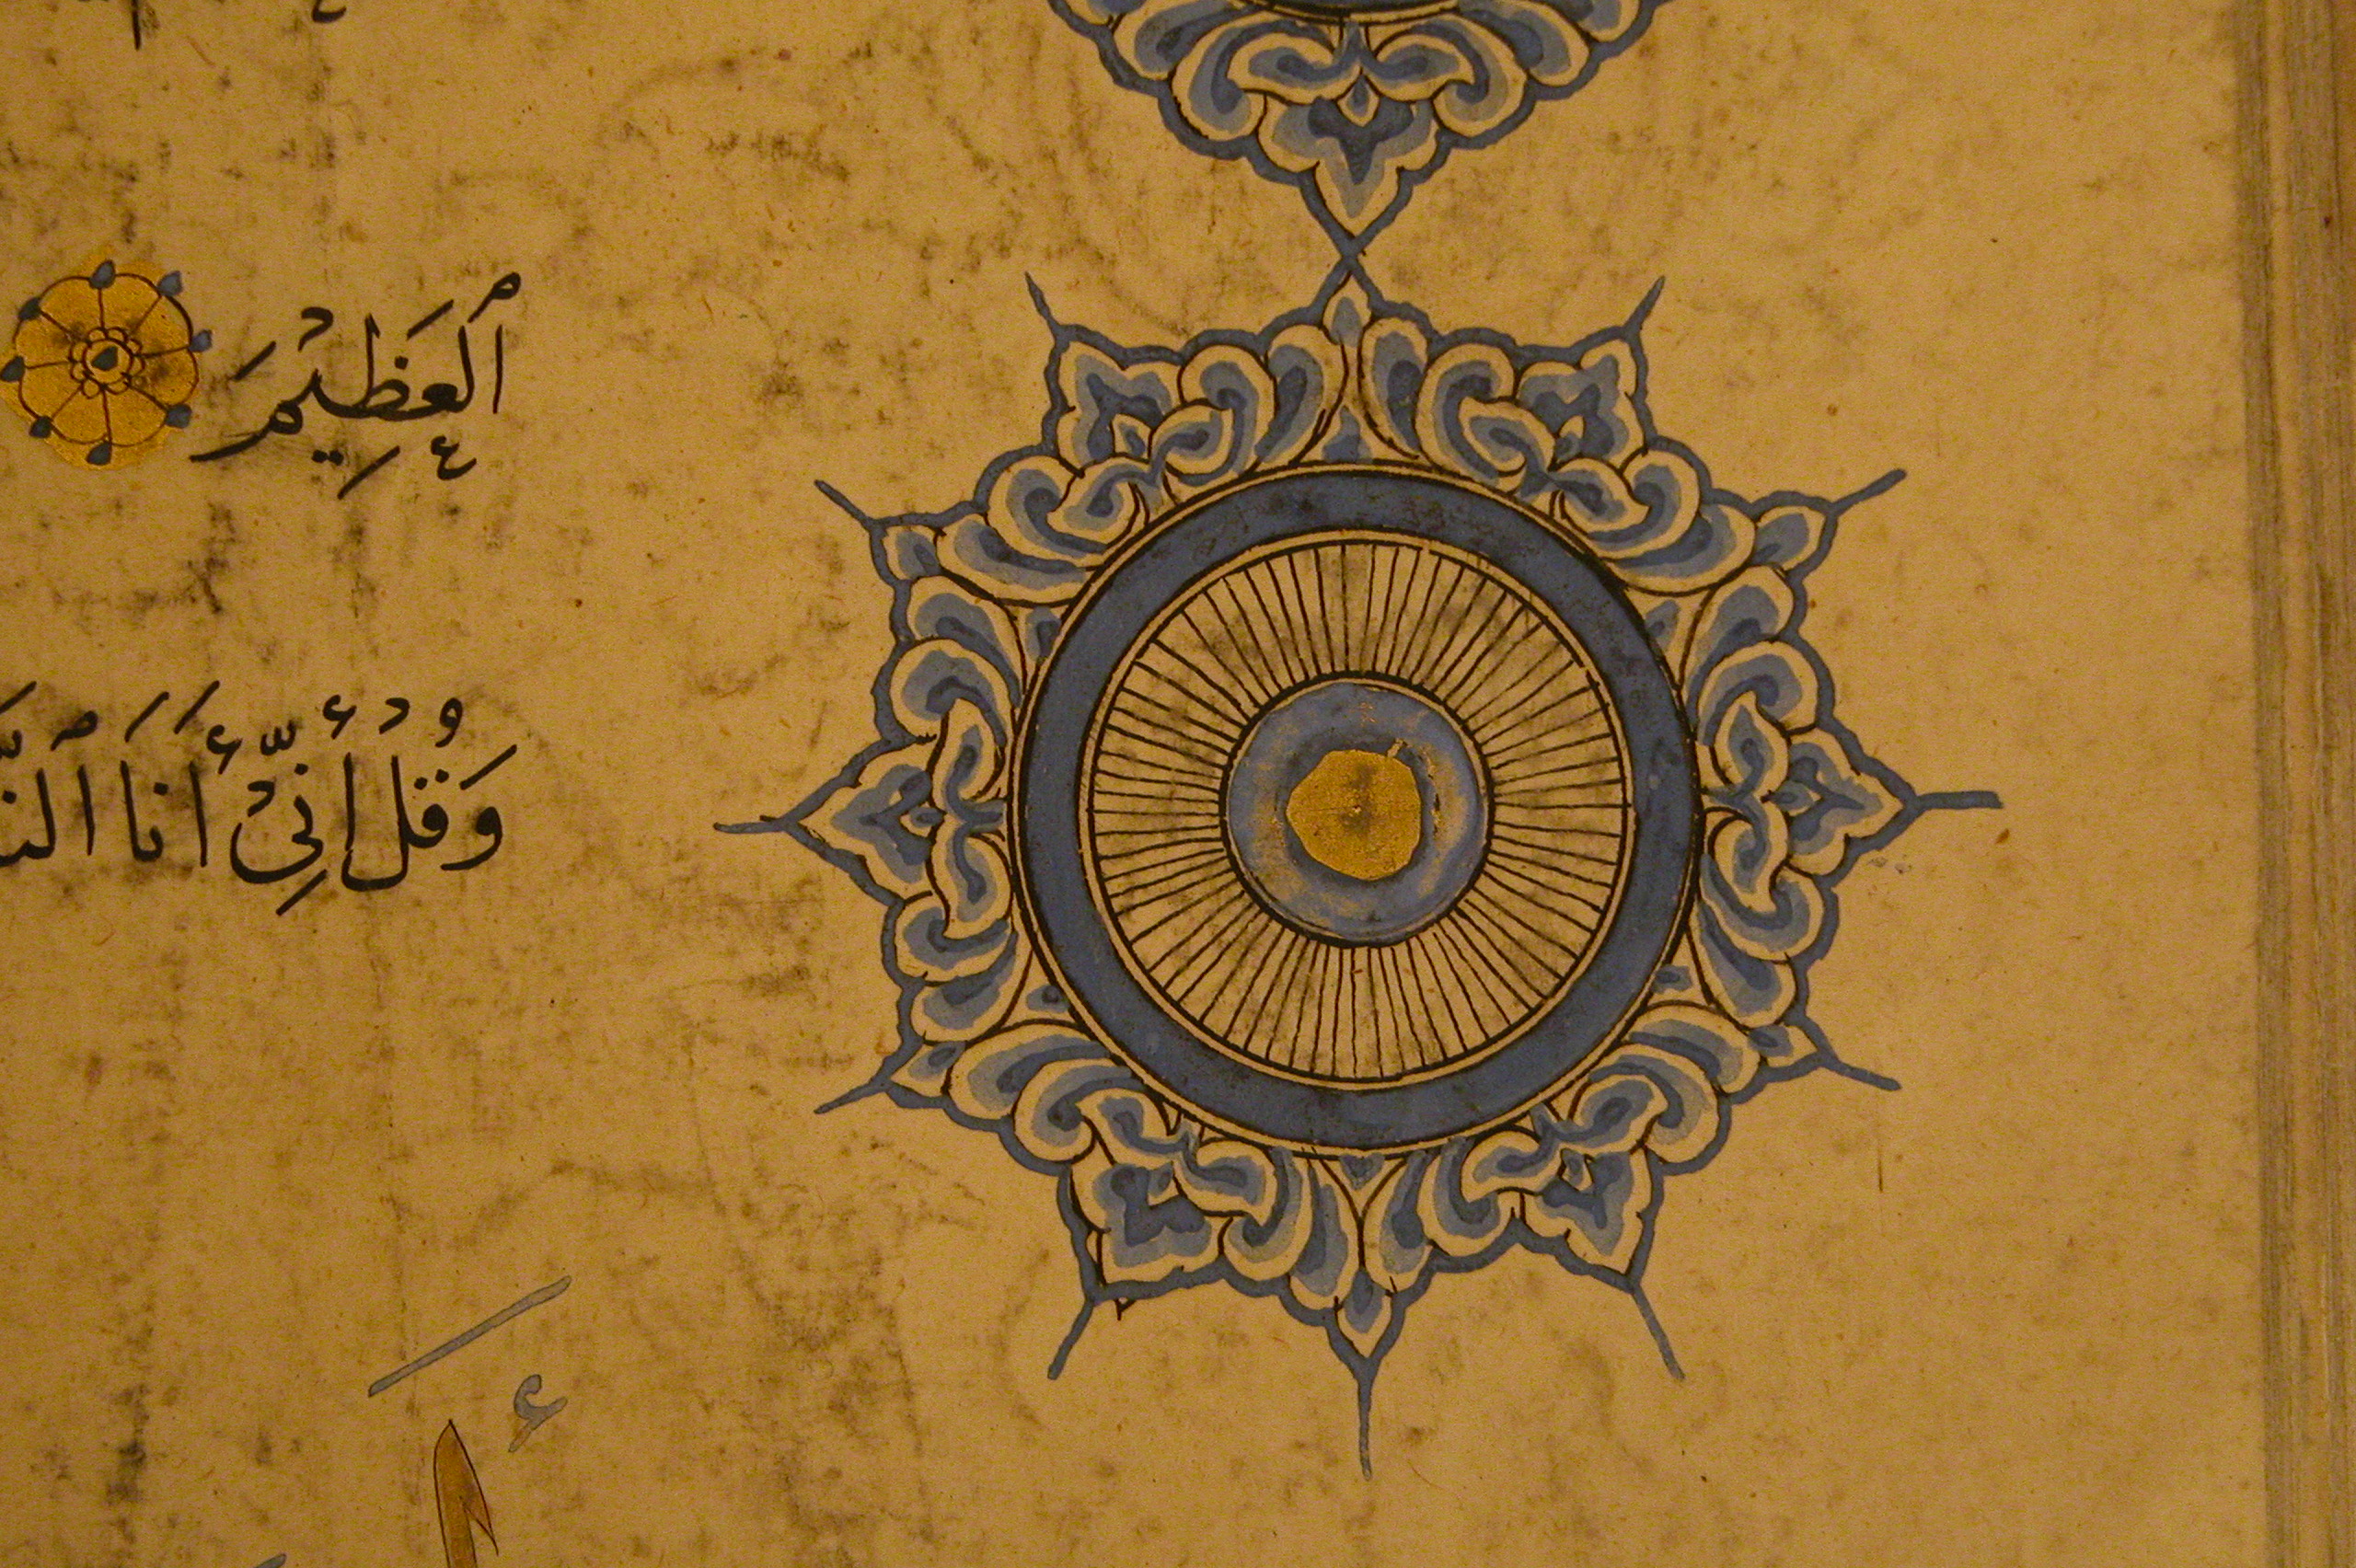 ٱلْعَظِيْمَ
وَقُلْ أِنِّيْ أَنَا ٱلنَّ